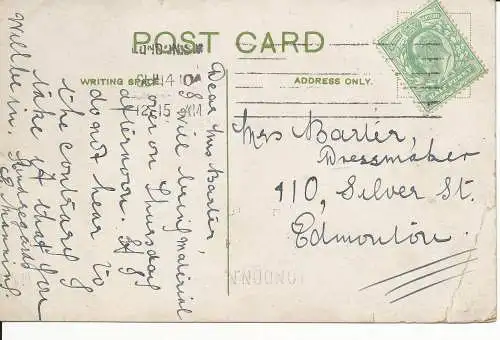 POST CARD
WRITING SPACE
ADDRESS ONLY.
12.15 AM
Dear Mrs Barter
I will bring material
over on Thursday
afternoon. If I
do not hear to
the contrary I
take it that you
will be in. Kind regards
E. Manning.
Mrs Barter,
Dressmaker
110, Silver St.
Edmonton.